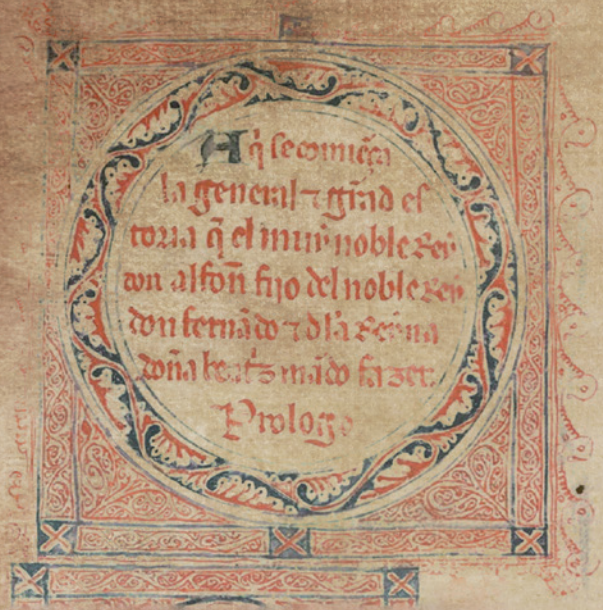 Aq̃ se comiẽça
la general ⁊ grãd es
toria q̃ el muy noble Rey
don alfon̄ fijo del noble Rey
don fernãdo ⁊ dla Reyna
doña beatz mãdo fazer
Prologo